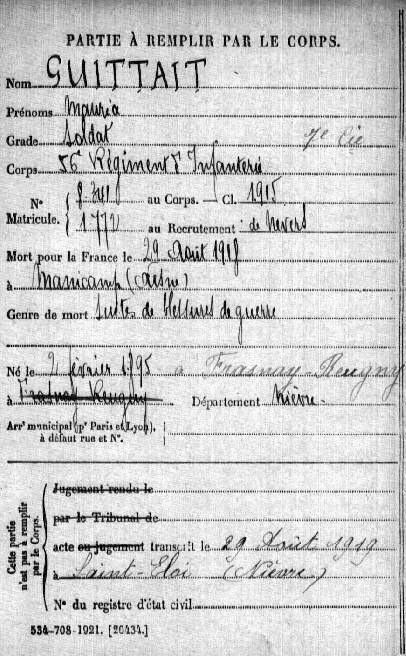 PARTIE À REMPLIR PAR LE CORPS.
Nom GUITTAIT
Prénoms Maurice
Grade Soldat 7e Cie
Corps 56 Régiment d'Infanterie
N° Matricule. { au Corps. — Cl. 1915
1772 au Recrutement de Nevers
Mort pour la France le 29 Août 1918
à Manicamp (Aisne)
Genre de mort Suites de blessures de guerre
Né le 2 février 1895 à Frasnay-Reugny
à Frasnay Reugny Département Nièvre
Arrt municipal (pr Paris et Lyon),
à défaut rue et N°.
Cette partie n'est pas à remplir par le Corps.
Jugement rendu le
par le Tribunal de
acte ou jugement transcrit le 29 Août 1919
à Saint-Eloi (Nièvre)
N° du registre d'état civil
534-708-1921. [26434.]